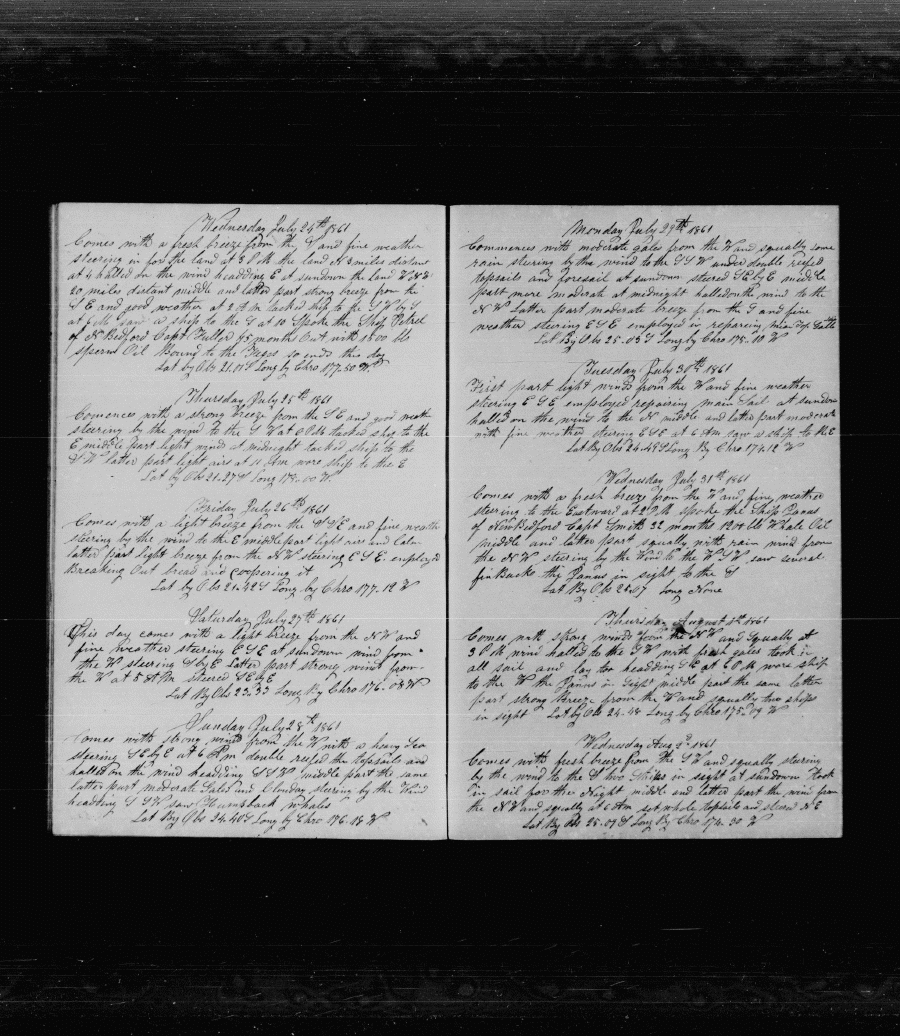 Wednesday July 24th 1861
Comes with a fresh breeze from the S and fine weather
steering in for the land at 3 P M the land N 3 miles distant
at 4 halled on the wind headding E at sundown the land WNW
20 miles distant middle and latter part strong breeze from the
S E and good weather at 2 A m tacked ship to the S W by S
at saw a ship to the S at 10 Spoke the Ship Petrel
of N Bedford Capt Fuller 45 month Out with 1500 bls
Sperm Oil Bound to the so ends this day
Lat by Obs 21.01 S Long by Chro 177.50 W
Thursday July 25th 1861
Comences with a strong breeze from the S E and good weath
steering by the wind to the S W at 6 P M tacked ship to the
E middle part light wind at midnight tacked ship to the
S W latter part light airs at 11 A m wore ship to the E
Lat by Obs 21.27 S Long 178.00 W
Friday July 26th 1861
Comes with a light breeze from the SSE and fine weathe
steering by the wind to the E middle part light airs and Calm
latter part light breeze from the N W steering E S E employed
Breaking Out bread and coopering it
Lat by Obs 21.42 S Long by Chro 177.12 W
Saturday July 27th 1861
This day comes with a light breeze from the N W and
fine weather steering E S E at sundown wind from
the W steering S by E Latter part strong winds from
the W at 5 A M steered S E by E
Lat By Obs 23.33 Long By Chro 176.08 W
Sunday July 28th 1861
Comes with strong winds from the W with a heavy Sea
steering S E by E at 6 P m double reefed the topsails and
halled on the wind headding S S W middle part the same
latter part moderate Gales and Clouday steering by the Wind
headding S S W saw Humpback whales
Lat By Obs 24.40 S Long by Chro 176.18 W
Monday July 29th 1861
Commences with moderate gales from the W and squally some
rain steering by the wind to the S S W under double reefed
topsails and foresail at sundown steered S E by E middle
part more moderate at midnight halled on the wind to the
N W Latter part moderate breeze from the S and fine
weather steering E S E employed in repairing main top
Lat By Obs 25.05 S Long by Chro 175.10 W
Tuesday July 30th 1861
First part light winds from the W and fine weather
steering E S E employed repairing main Sail at sundown
halled on the wind to the N middle and latter part moderate
with fine weather steering E S E at 6 A m saw a ship to the E
Lat By Obs 24.49 S Long By Chro 174.12 W
Wednesday July 31st 1861
Comes with a fresh breeze from the W and fine weather
steering to the Eastward at 2 P M spoke the Ship Janus
of New Bedford Capt Smith 22 months 1200 bls Whale Oil
middle and latter part squally with rain wind from
the N W steering by the Wind to the W S W saw several
fin Backs the Janus in sight to the S
Lat By Obs 25.07 Long None
Thursday August 1st 1861
Comes with strong winds from the N W and squally at
3 P M wind halled to the S W with fresh gales took in
all sail and lay too headding S E at 6 P M wore ship
to the W the Janus in sight middle part the same latter
part strong Breeze from the W and squally two ships
in sight Lat by Obs 24.48 Long by Chro 175.09 W
Wednesday Aug 2d 1861
Comes with fresh breeze from the S W and squally steering
by the wind to the S two Ships in sight at sundown Took
in sail for the Night middle and latter part the wind from
the N W and squally at 6 A m set whole topsails and steered N E
Lat By Obs 25.09 S Long By Chro 174.30 W